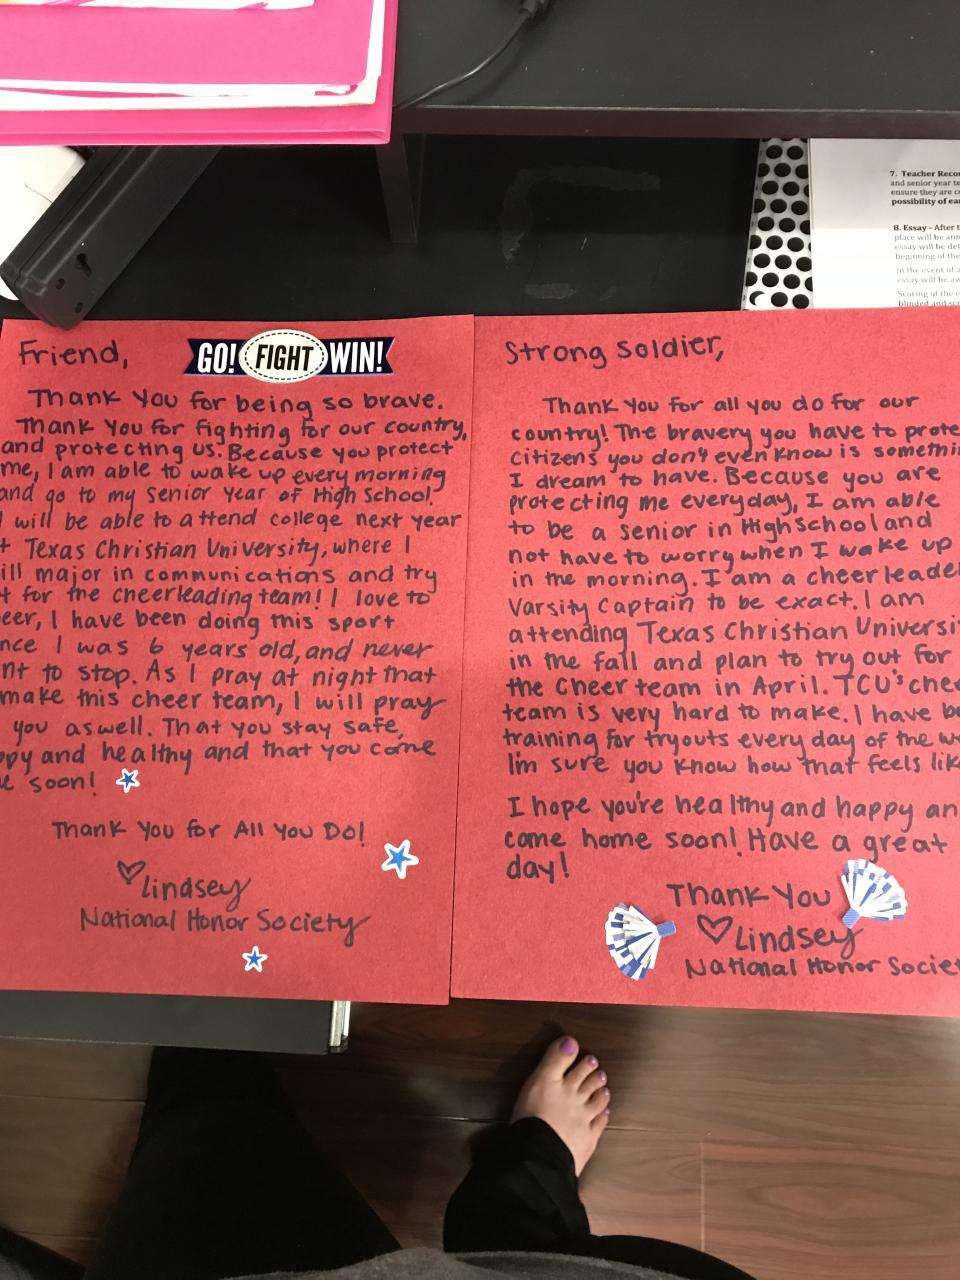 7. Teacher Recor
and senior year te
ensure they are c
possibility of ear
8. Essay - After t
place will be ann
essay will be det
beginning of the
In the event of a
essay will be aw
Scoring of the e
blinded and sco
Friend,
GO! FIGHT WIN!
Thank You for being so brave.
Thank You for fighting for our country,
and protecting us. Because you protect
me, I am able to wake up every morning
and go to my senior year of High School!
I will be able to attend college next year
t Texas Christian University, where I
ill major in communications and try
t for the cheerleading team! I love to
eer, I have been doing this sport
nce I was 6 years old, and never
nt to stop. As I pray at night that
make this cheer team, I will pray
you aswell. That you stay safe,
ppy and healthy and that you come
e soon!
Thank You for All You Do!
Lindsey
National Honor Society
Strong Soldier,
Thank You for all you do for our
country! The bravery you have to prote
citizens you don't even know is somethin
I dream to have. Because you are
protecting me everyday, I am able
to be a senior in High School and
not have to worry when I wake up
in the morning. I am a cheerleade
Varsity Captain to be exact. I am
attending Texas Christian Universit
in the fall and plan to try out for
the Cheer team in April. TCU's chee
team is very hard to make. I have be
training for tryouts every day of the we
I'm sure you know how that feels lik
I hope you're healthy and happy an
come home soon! Have a great
day!
Thank You
Lindsey
National Honor Societ